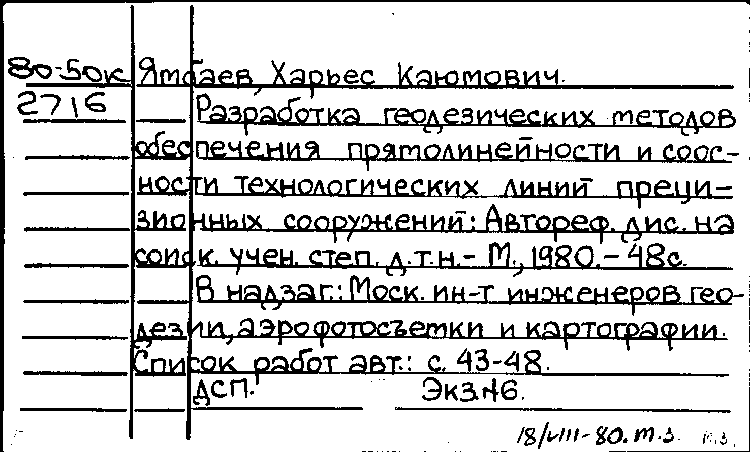 80-50к Ямбаев, Харьес Каюмович.
2716 Разработка геодезических методов
обеспечения прямолинейности и соос-
ности технологических линий преци-
зионных сооружений: Автореф. дис. на
соиск. учен. степ. д.т.н.- М., 1980.- 48с.
В надзаг.: Моск. ин-т инженеров гео-
дезии, аэрофотосъемки и картографии.
Список работ авт.: с. 43-48.
ДСП. Экз.№6.
18/VIII-80. т.з. т.з.